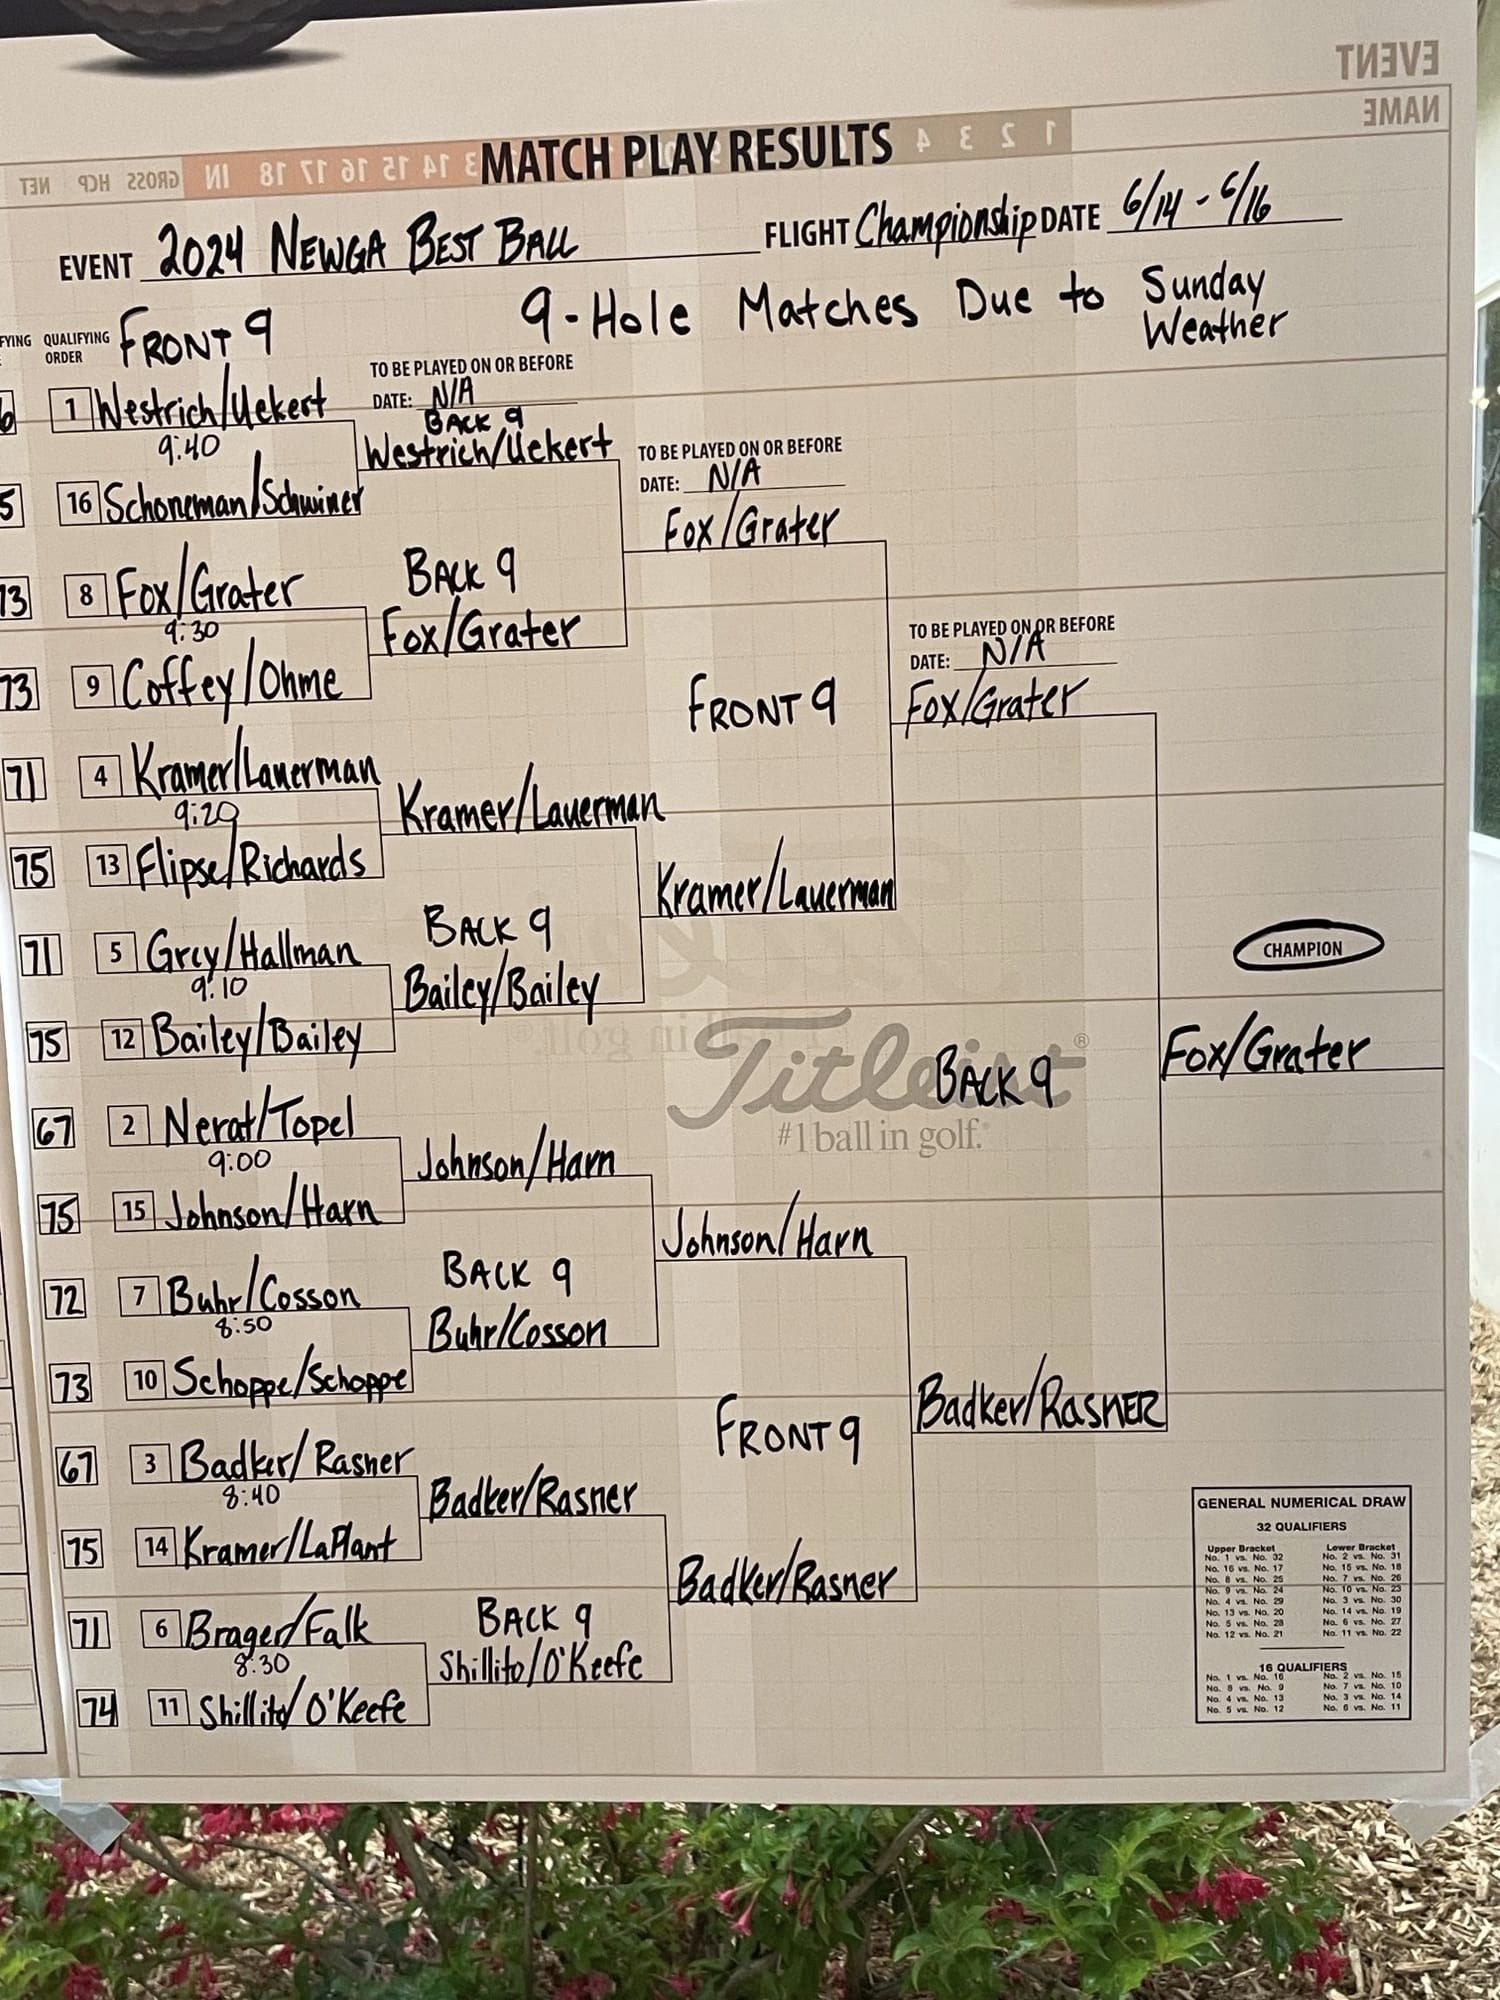 EVENT
NAME
NET HCP GROSS IN 18 17 16 15 14 3 4 3 2 1
MATCH PLAY RESULTS
EVENT 2024 NEWGA BEST BALL FLIGHT Championship DATE 6/14 - 6/16
9-Hole Matches Due to Sunday
Weather
FYING QUALIFYING
ORDER
FRONT 9
TO BE PLAYED ON OR BEFORE
DATE: N/A
BACK 9
1 Westrich/Uekert
9:40
Westrich/Uekert
TO BE PLAYED ON OR BEFORE
DATE: N/A
5 16 Schoneman/Schwiner
Fox/Grater
BACK 9
73 8 Fox/Grater
9:30
Fox/Grater
TO BE PLAYED ON OR BEFORE
DATE: N/A
73 9 Coffey/Ohme
FRONT 9
Fox/Grater
71 4 Kramer/Lauerman
9:20
Kramer/Lauerman
75 13 Flipse/Richards
Kramer/Lauerman
BACK 9
71 5 Grey/Hallman
9:10
Bailey/Bailey
CHAMPION
75 12 Bailey/Bailey
#1 ball in golf.®
Titleist®
#1 ball in golf.®
BACK 9
Fox/Grater
67 2 Nerat/Topel
9:00
Johnson/Harn
75 15 Johnson/Harn
Johnson/Harn
BACK 9
72 7 Buhr/Cosson
8:50
Buhr/Cosson
73 10 Schoppe/Schoppe
FRONT 9
Badker/RASNER
67 3 Badker/Rasner
8:40
Badker/Rasner
75 14 Kramer/LaPlant
Badker/Rasner
BACK 9
71 6 Brager/Falk
8:30
Shillito/O'Keefe
74 11 Shillito/O'Keefe
GENERAL NUMERICAL DRAW
32 QUALIFIERS
Upper Bracket Lower Bracket
No. 1 vs. No. 32 No. 2 vs. No. 31
No. 16 vs. No. 17 No. 15 vs. No. 18
No. 8 vs. No. 25 No. 7 vs. No. 26
No. 9 vs. No. 24 No. 10 vs. No. 23
No. 4 vs. No. 29 No. 3 vs. No. 30
No. 13 vs. No. 20 No. 14 vs. No. 19
No. 5 vs. No. 28 No. 6 vs. No. 27
No. 12 vs. No. 21 No. 11 vs. No. 22
16 QUALIFIERS
No. 1 vs. No. 16 No. 2 vs. No. 15
No. 8 vs. No. 9 No. 7 vs. No. 10
No. 4 vs. No. 13 No. 3 vs. No. 14
No. 5 vs. No. 12 No. 6 vs. No. 11